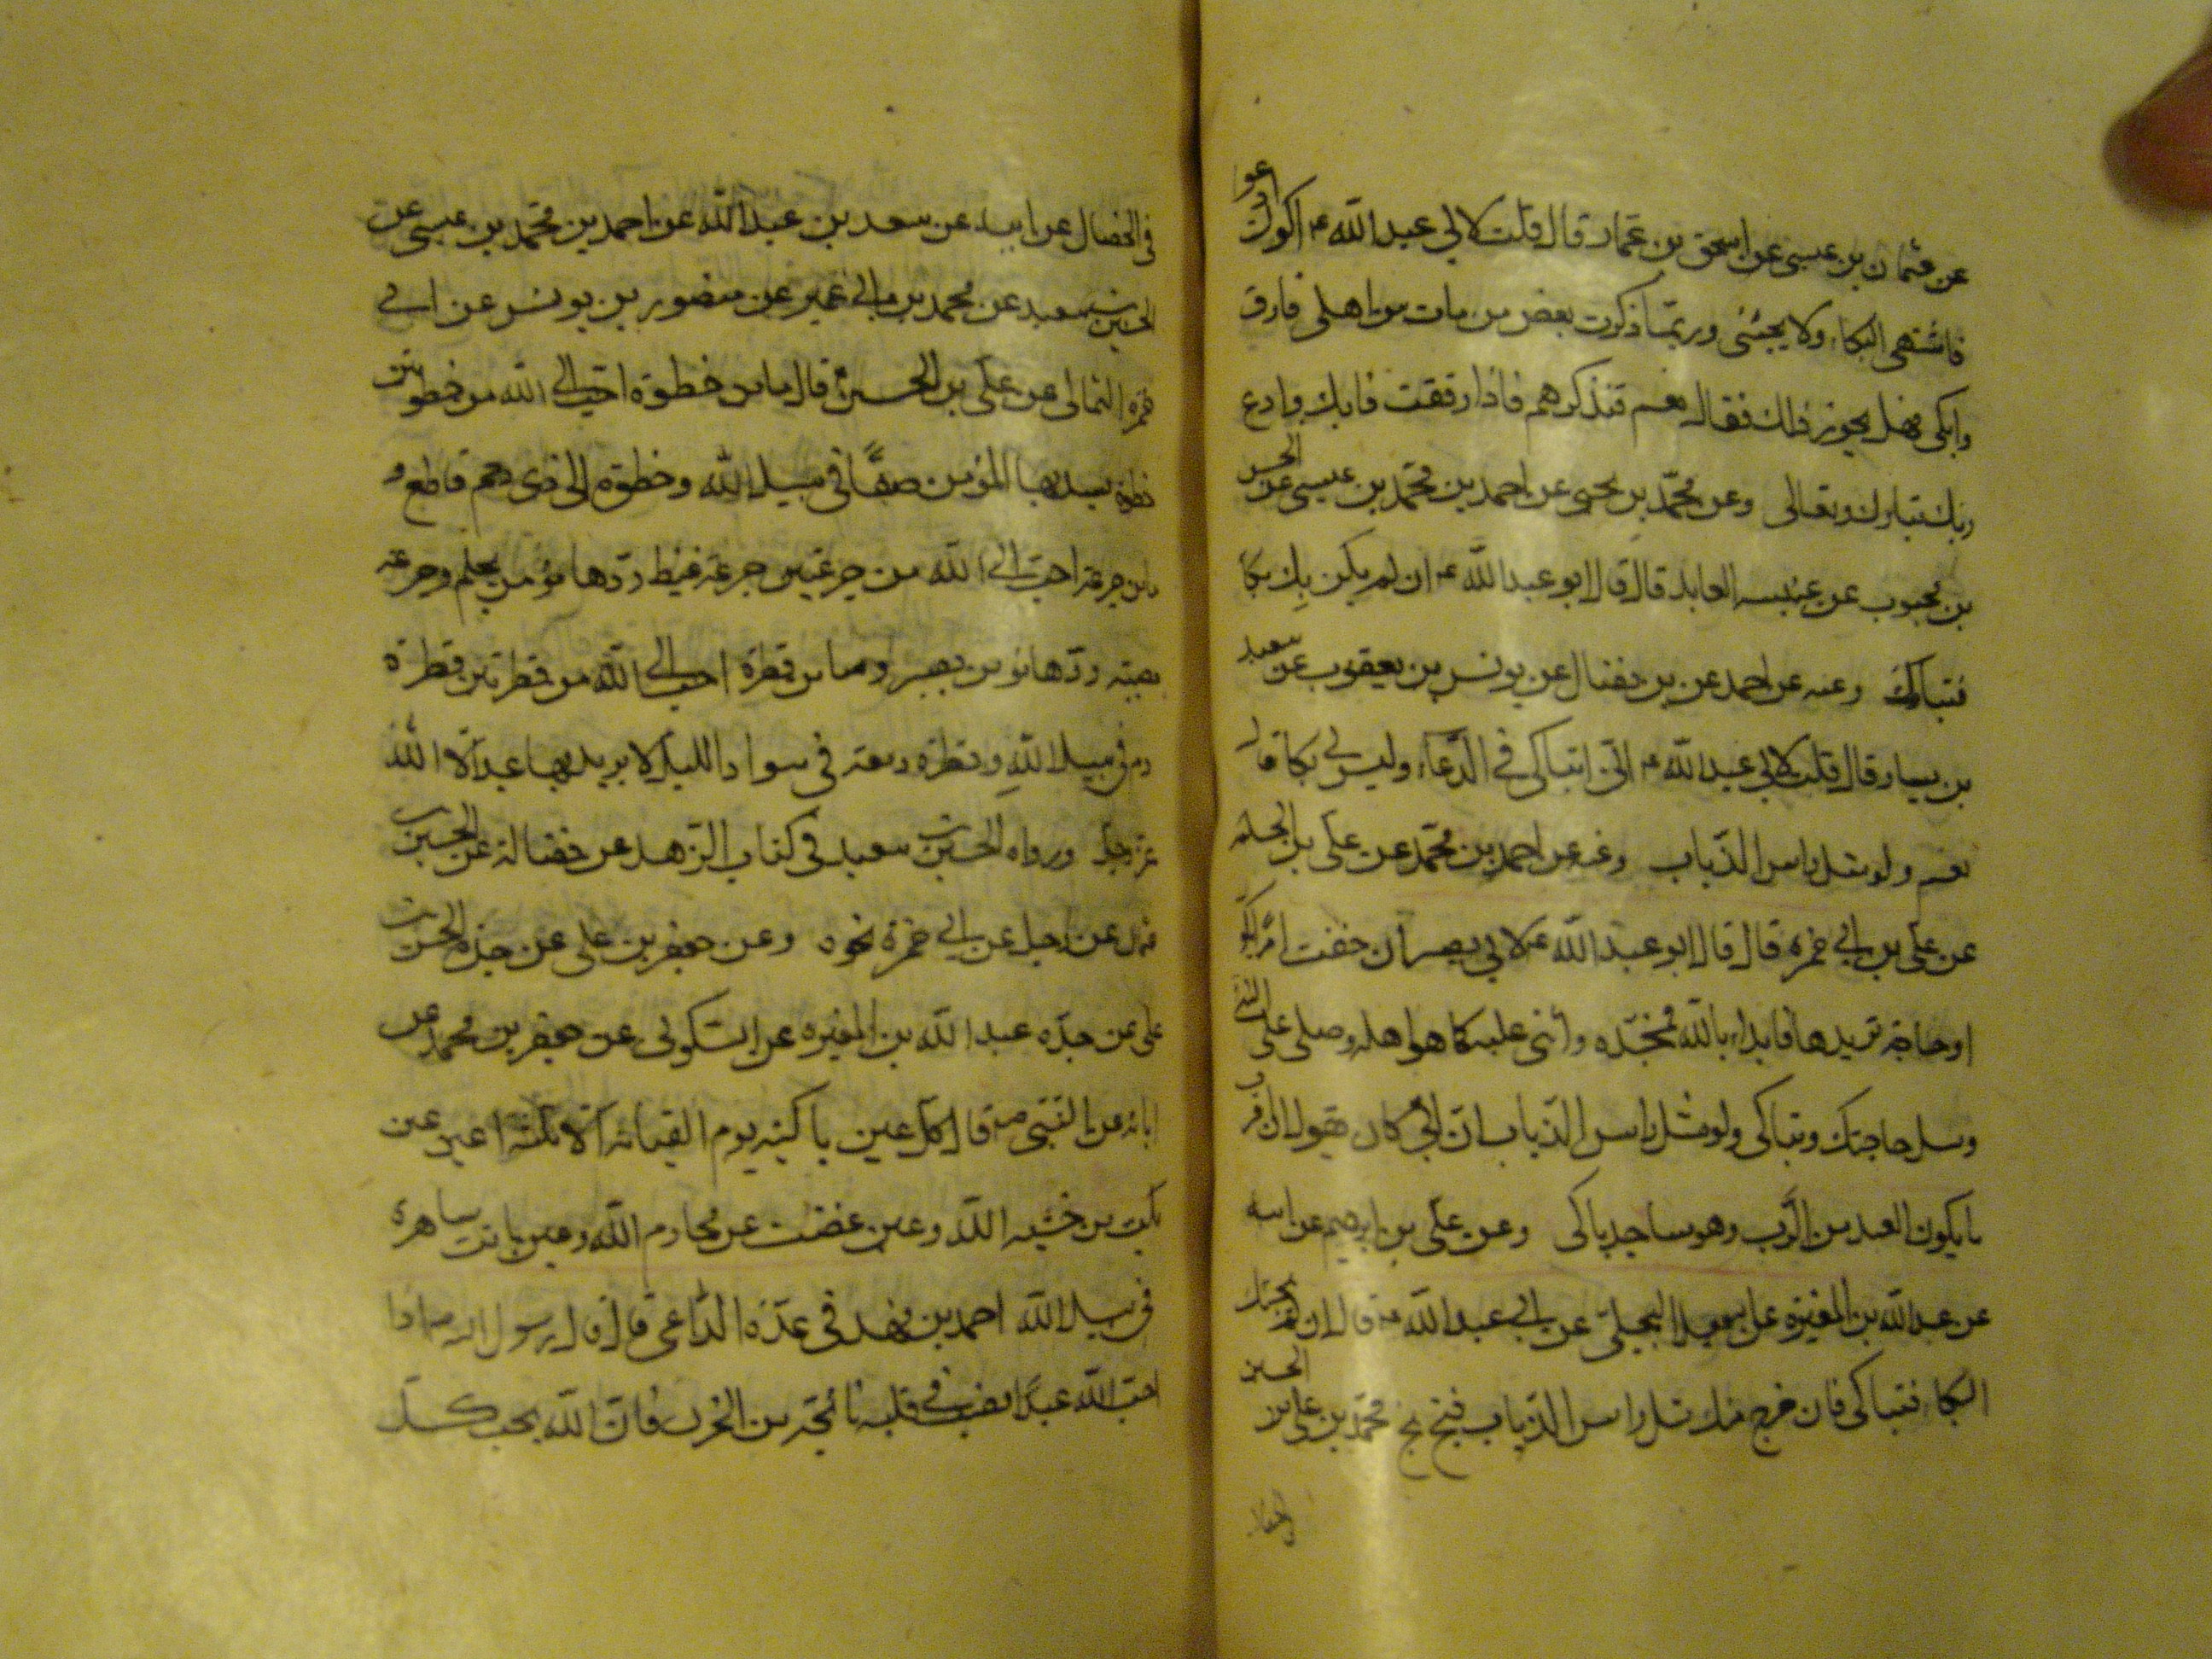 عن عثمان بن عيسى عن اسحق بن عمار قال قلت لابي عبد الله ع اكون ادعو
فاشتهي البكاء ولا يجئني وربما ذكرت بعض من مات من اهلي فارق
وابكي فهل يجوز ذلك فقال نعم فتذكرهم فاذا رققت فابك وادع
ربك تبارك وتعالى وعن محمد بن يحيى عن احمد بن محمد بن عيسى عن الحسن
بن محبوب عن عنبسه العابد قال قال ابو عبد الله ع ان لم يكن بك بكا
فتباك وعنه عن احمد عن بن فضال عن يونس بن يعقوب عن سعيد
بن يسار قال قلت لابي عبد الله ع اني اتباكى في الدعاء وليس لي بكا قال
نعم ولو مثل راس الذباب وعنه عن احمد بن محمد عن علي بن الحكم
عن علي بن ابي حمزه قال قال ابو عبد الله ع لابي بصير ان خفت امرا يكون
او حاجة تريدها فابداء بالله فمجده واثنى عليه كما هو اهله وصلى على النبي
وسل حاجتك وتباكى ولو مثل راس الذباب ان ابي كان يقول ان اقرب
ما يكون العبد من الرب وهو ساجد باكى وعن علي بن ابرهيم عن ابيه
عن عبد الله بن المغيره عن اسمعيل البجلي عن ابي عبد الله ع قال ان لم يجئك
البكاء فتباكى فان خرج منك مثل راس الذباب فبخ بخ محمد بن علي بن الحسين
في الخصال عن ابيه عن سعد بن عبد الله عن احمد بن محمد بن عيسى عن
الحسين بن سعيد عن محمد بن ابي عمير عن منصور بن يونس عن ابي
حمزه الثمالى عن علي بن الحسين ع قال ما من خطوة احب الى الله من خطوتين
خطوة يسد بها المؤمن صفا في سبيل الله وخطوة الى ذى رحم قاطع و
ما من جرعة احب الى الله من جرعتين جرعة غيظ ردها مؤمن بحلم وجرعة
مصيبة ردها مؤمن بصبر وما من قطرة احب الى الله من قطرتين قطرة
دم في سبيل الله وقطرة دمعة في سواد الليل لا يريد بها عبد الا الله
عز وجل ورواه الحسين بن سعيد في كتاب الزهد عن فضالة عن الحسين بن
عثمان عن رجل عن ابي حمزة نحوه وعن جعفر بن علي عن جده الحسن بن
علي عن جده عبد الله بن المغيره عن السكونى عن جعفر بن محمد عن
ابائه عن النبي ص قال كل عين باكية يوم القيامة الا ثلثة اعين عين
بكت من خشيه الله وعين غضت عن محارم الله وعين باتت ساهرة
في سبيل الله احمد بن فهد في عدة الداعي قال قال رسول الله ص اذا
احب الله عبدا نصب في قلبه نائحة من الحزن فان الله يحب كل